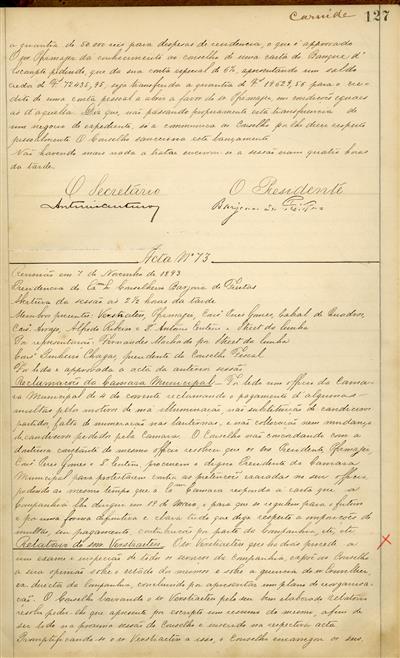 Carnide 127
a quantia de 50:000 reis para despezas de residencia, o que é approvado
O snr Pfimayer da conhecimento ao conselho de uma carta do Banque d'
Escompte pedindo, que da sua conta especial de 6%, apresentando um saldo
credor de
seja transferida a quantia de para o cre-
dito de uma conta pessoal a abrir a favor do sr Pfimayer, em condições eguaes
ás d'aquella. Diz que, não passando propriamente esta transferencia de
um negocio de expediente, só a communica ao Conselho por lhe dizer respeito
pessoalmente. O Conselho sancciona este lançamento
Não havendo mais nada a tratar encerrou-se a sessão eram quatro horas
da tarde.
O Secretario O Presidente
Acta Nº 73
Reunião em 7 de Novembro de 1893
Presidencia do Conselheiro Barjona de Freitas
Abertura da sessão ás 2½ horas da tarde
Membros presentes: Verstraeten, Pfimayer, Peres Gomes, Cabral de Quadros
Alfredo Ribeiro e Dr Antonio Centeno e Street da Cunha
Fez representar: Fernandes Machado por Street da Cunha
Pinheiro Chagas, presidente do Conselho Fiscal
Foi lida e approvada a acta da anterior sessão
Reclamações da Camara Municipal – Foi lido um officio da Cama-
ra Municipal de 4 do corrente reclamando o pagamento d'algumas
multas pelo motivo de má illuminação, na substituição de candieiros
partidos, falta de numeração nas lanternas, e má collocação sem mudança
de candieiros pedidos pela Camara. O Conselho não concordando com a
doutrina constante do mesmo officio resolveu que os srs Presidente Pfimayer,
Peres Gomes e Dr Centeno procurem o digno Presidente da Camara
Municipal para protestarem contra as pretenções exaradas no seu officio,
pedindo ao mesmo tempo que a Camara responda á carta que a
Companhia lhe dirigiu em 18 de Maio, e para que se regulem para o futuro
e por uma forma definitiva e clara tudo que diga respeito a imposições de
multas, em pagamento, contribuição por parte da Companhia, etc, etc
Relatorio do snr Verstraeten – O snr Verstraeten que havia procedido a
um exame e inspecção de todos os serviços da Companhia, expôs ao Conselho
a sua opinião sobre o estado dos mesmos e sobre a gerencia do sr Conselheiro
director da Companhia, concluindo por apresentar um plano de reorganisa-
ção. O Conselho louvando o sr Verstraeten pelo seu bem elaborado relatorio
resolve pedir-lhe que apresente por escripto um resumo do mesmo, afim de
ser lido na proxima sessão do Conselho e inserido na respectiva acta
Promptificando-se o sr Verstraeten a isso, o Conselho encarregou os srs.